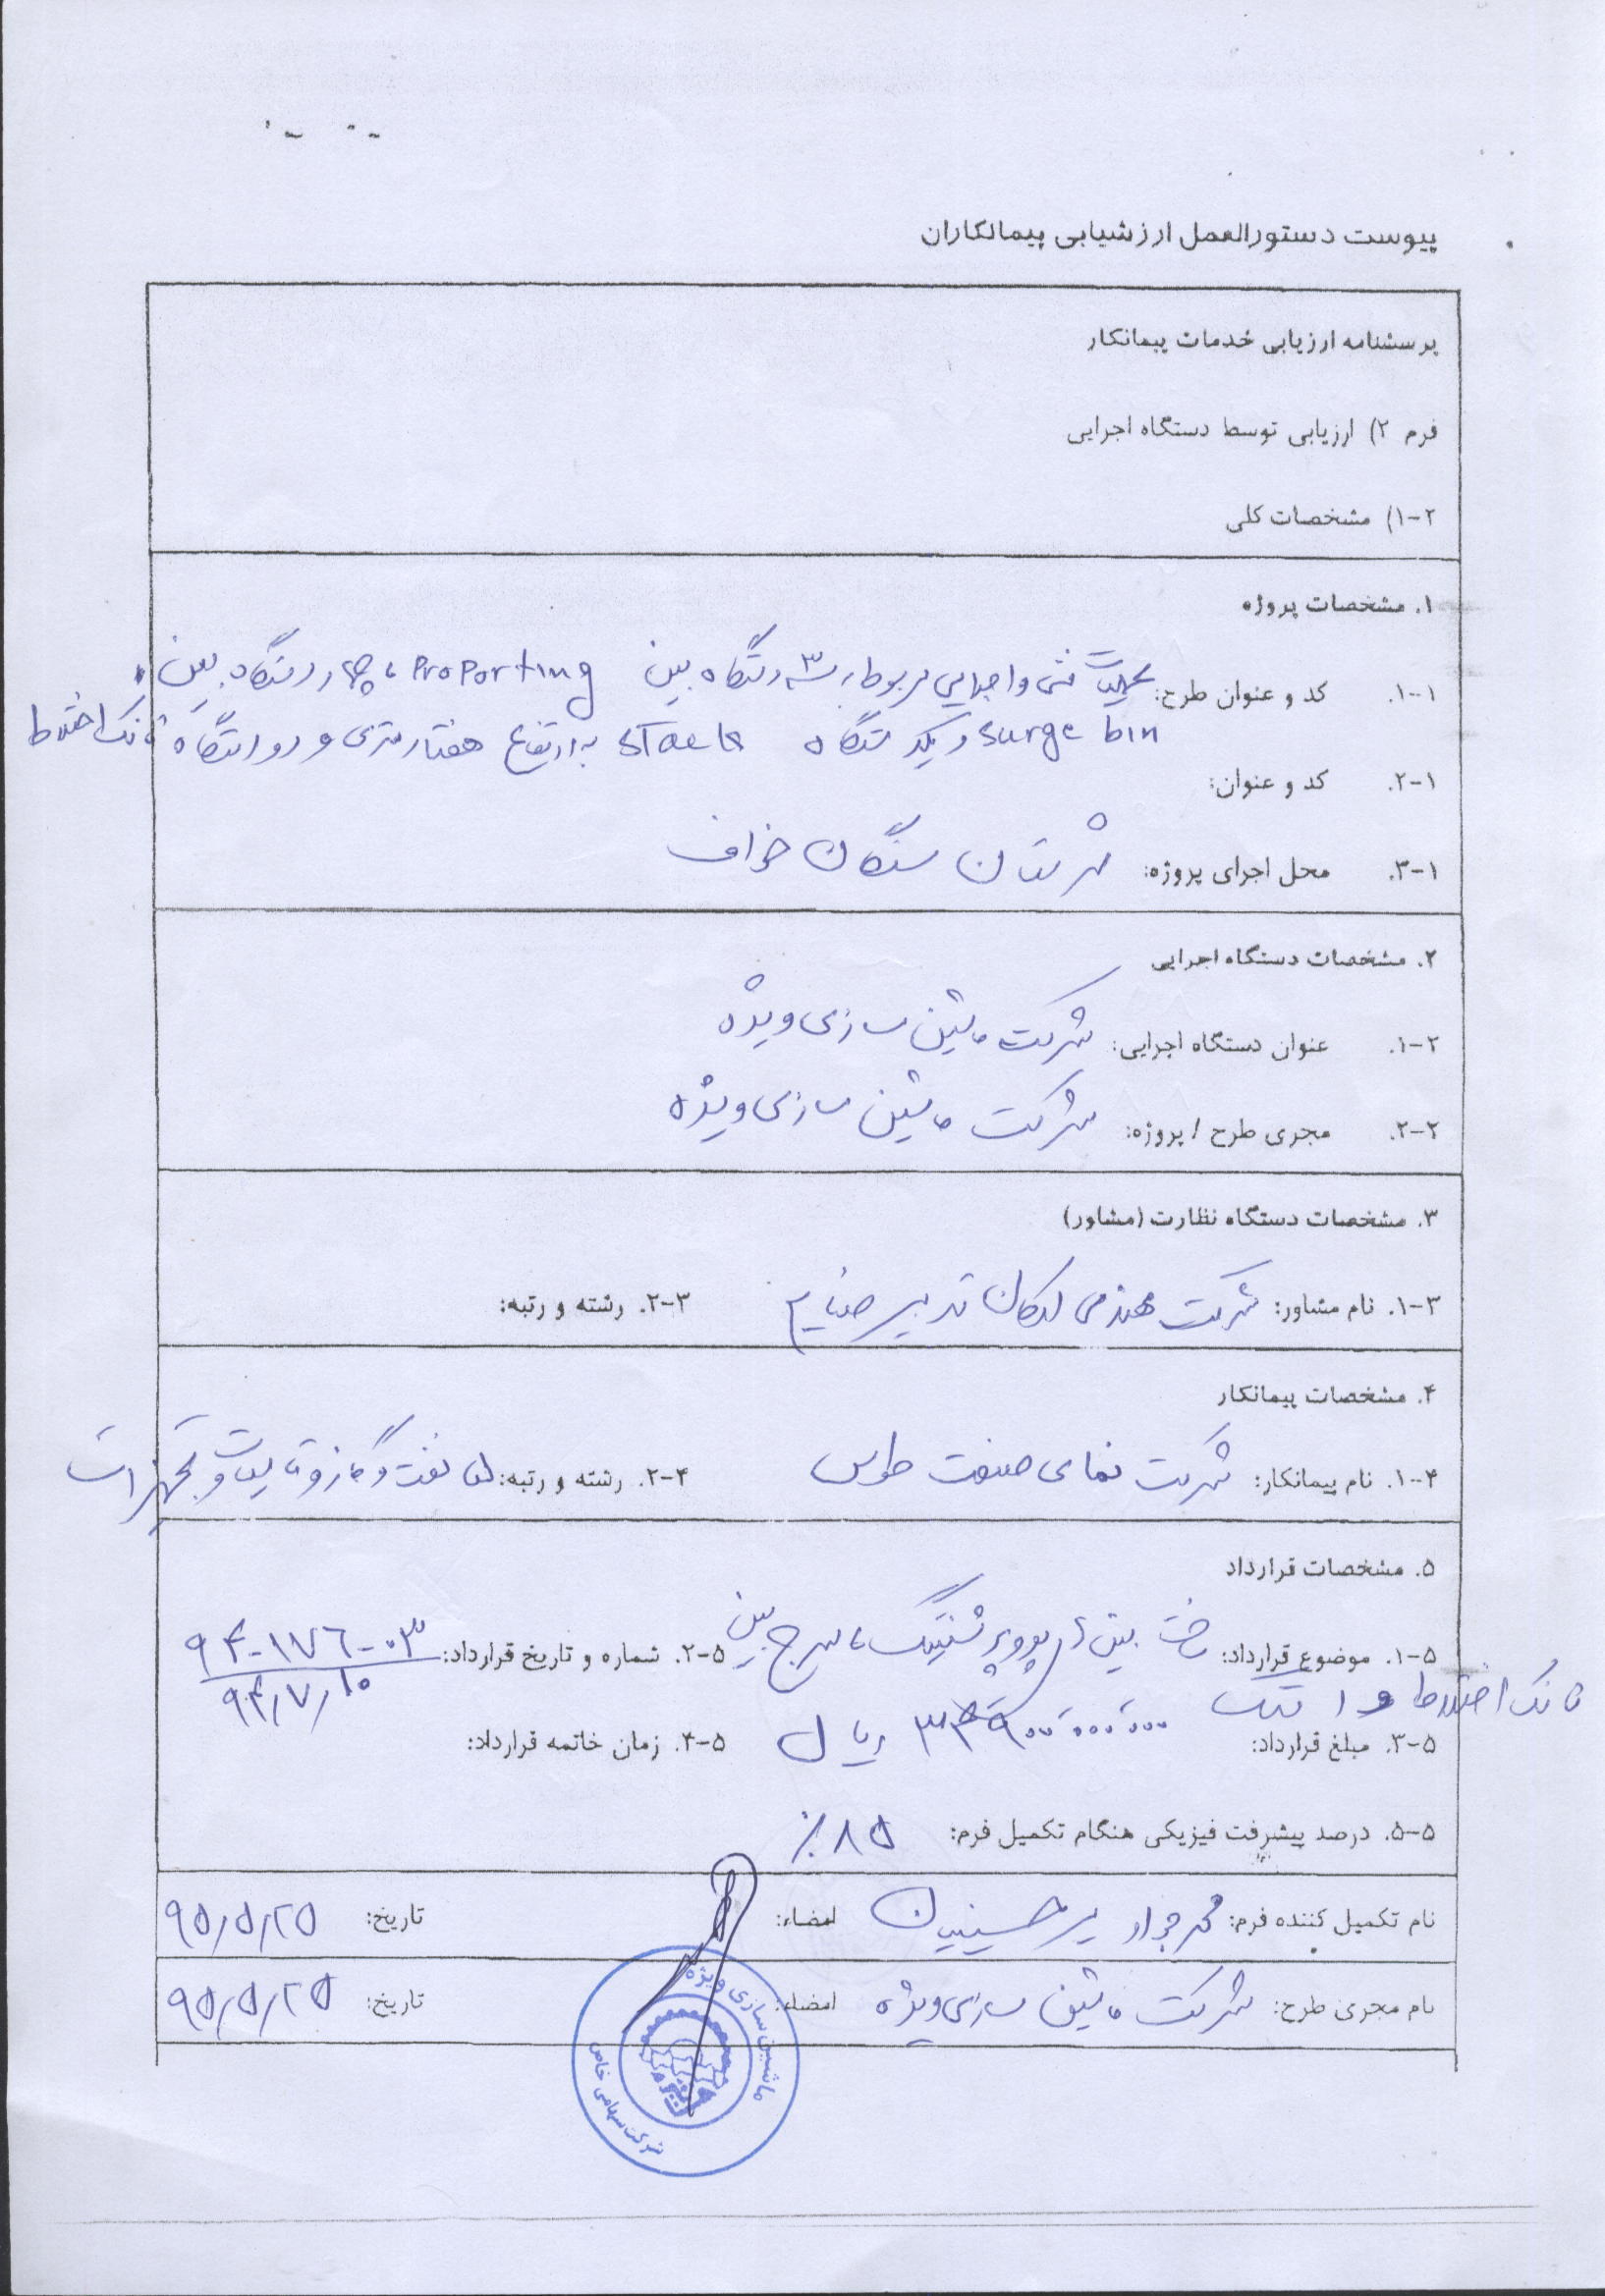 پیوست دستورالعمل ارزشیابی پیمانکاران
پرسشنامه ارزیابی خدمات پیمانکار
فرم ۲) ارزیابی توسط دستگاه اجرایی
۱-۲) مشخصات کلی
۱. مشخصات پروژه
۱-۱. کد و عنوان طرح: عملیات فنی و اجرایی مربوط به ۳ دستگاه بین Proporting ، چهار دستگاه بین
surge bin و یک دستگاه stack به ارتفاع هفتاد متری و دو دستگاه تانک اختلاط
۲-۱. کد و عنوان:
۳-۱. محل اجرای پروژه: شهرستان سنگان خواف
۲. مشخصات دستگاه اجرایی
۱-۲. عنوان دستگاه اجرایی: شرکت ماشین سازی ویژه
۲-۲. مجری طرح / پروژه: شرکت ماشین سازی ویژه
۳. مشخصات دستگاه نظارت (مشاور)
۱-۳. نام مشاور: شرکت مهندسی تدبیر صنایع ۲-۳. رشته و رتبه:
۴. مشخصات پیمانکار
۱-۴. نام پیمانکار: شرکت نمای صنعت طوس ۲-۴. رشته و رتبه: نفت و گاز و تاسیسات و تجهیزات
۵. مشخصات قرارداد
۱-۵. موضوع قرارداد: ساخت بین پروپرشنینگ، سرج بین ۲-۵. شماره و تاریخ قرارداد: ۹۴-۱۷۶-۰۳
تانک اختلاط و استک ۹۴/۷/۱۵
۳-۵. مبلغ قرارداد: ریال ۴-۵. زمان خاتمه قرارداد:
۵-۵. درصد پیشرفت فیزیکی هنگام تکمیل فرم: ۸۵٪
نام تکمیل کننده فرم: محمد جواد میرحسینیان امضاء: تاریخ: ۹۵/۵/۲۵
نام مجری طرح: شرکت ماشین سازی ویژه امضاء: تاریخ: ۹۵/۵/۲۵
ماشین سازی ویژه
شرکت سهامی خاص